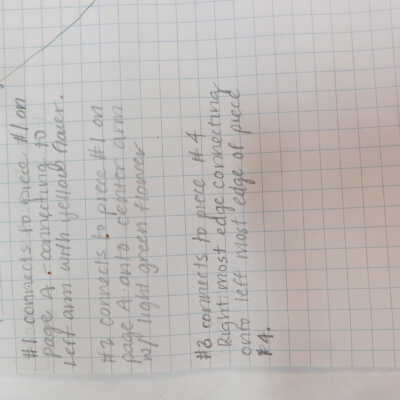 #1 connects to piece #1 on
page A. connecting to
Left arm with yellow flower.
#2 connects to piece #1 on
page A onto center arm
w/ light green flower
#3 connects to piece #4
Right most edge connecting
onto left most edge of piece
#4.